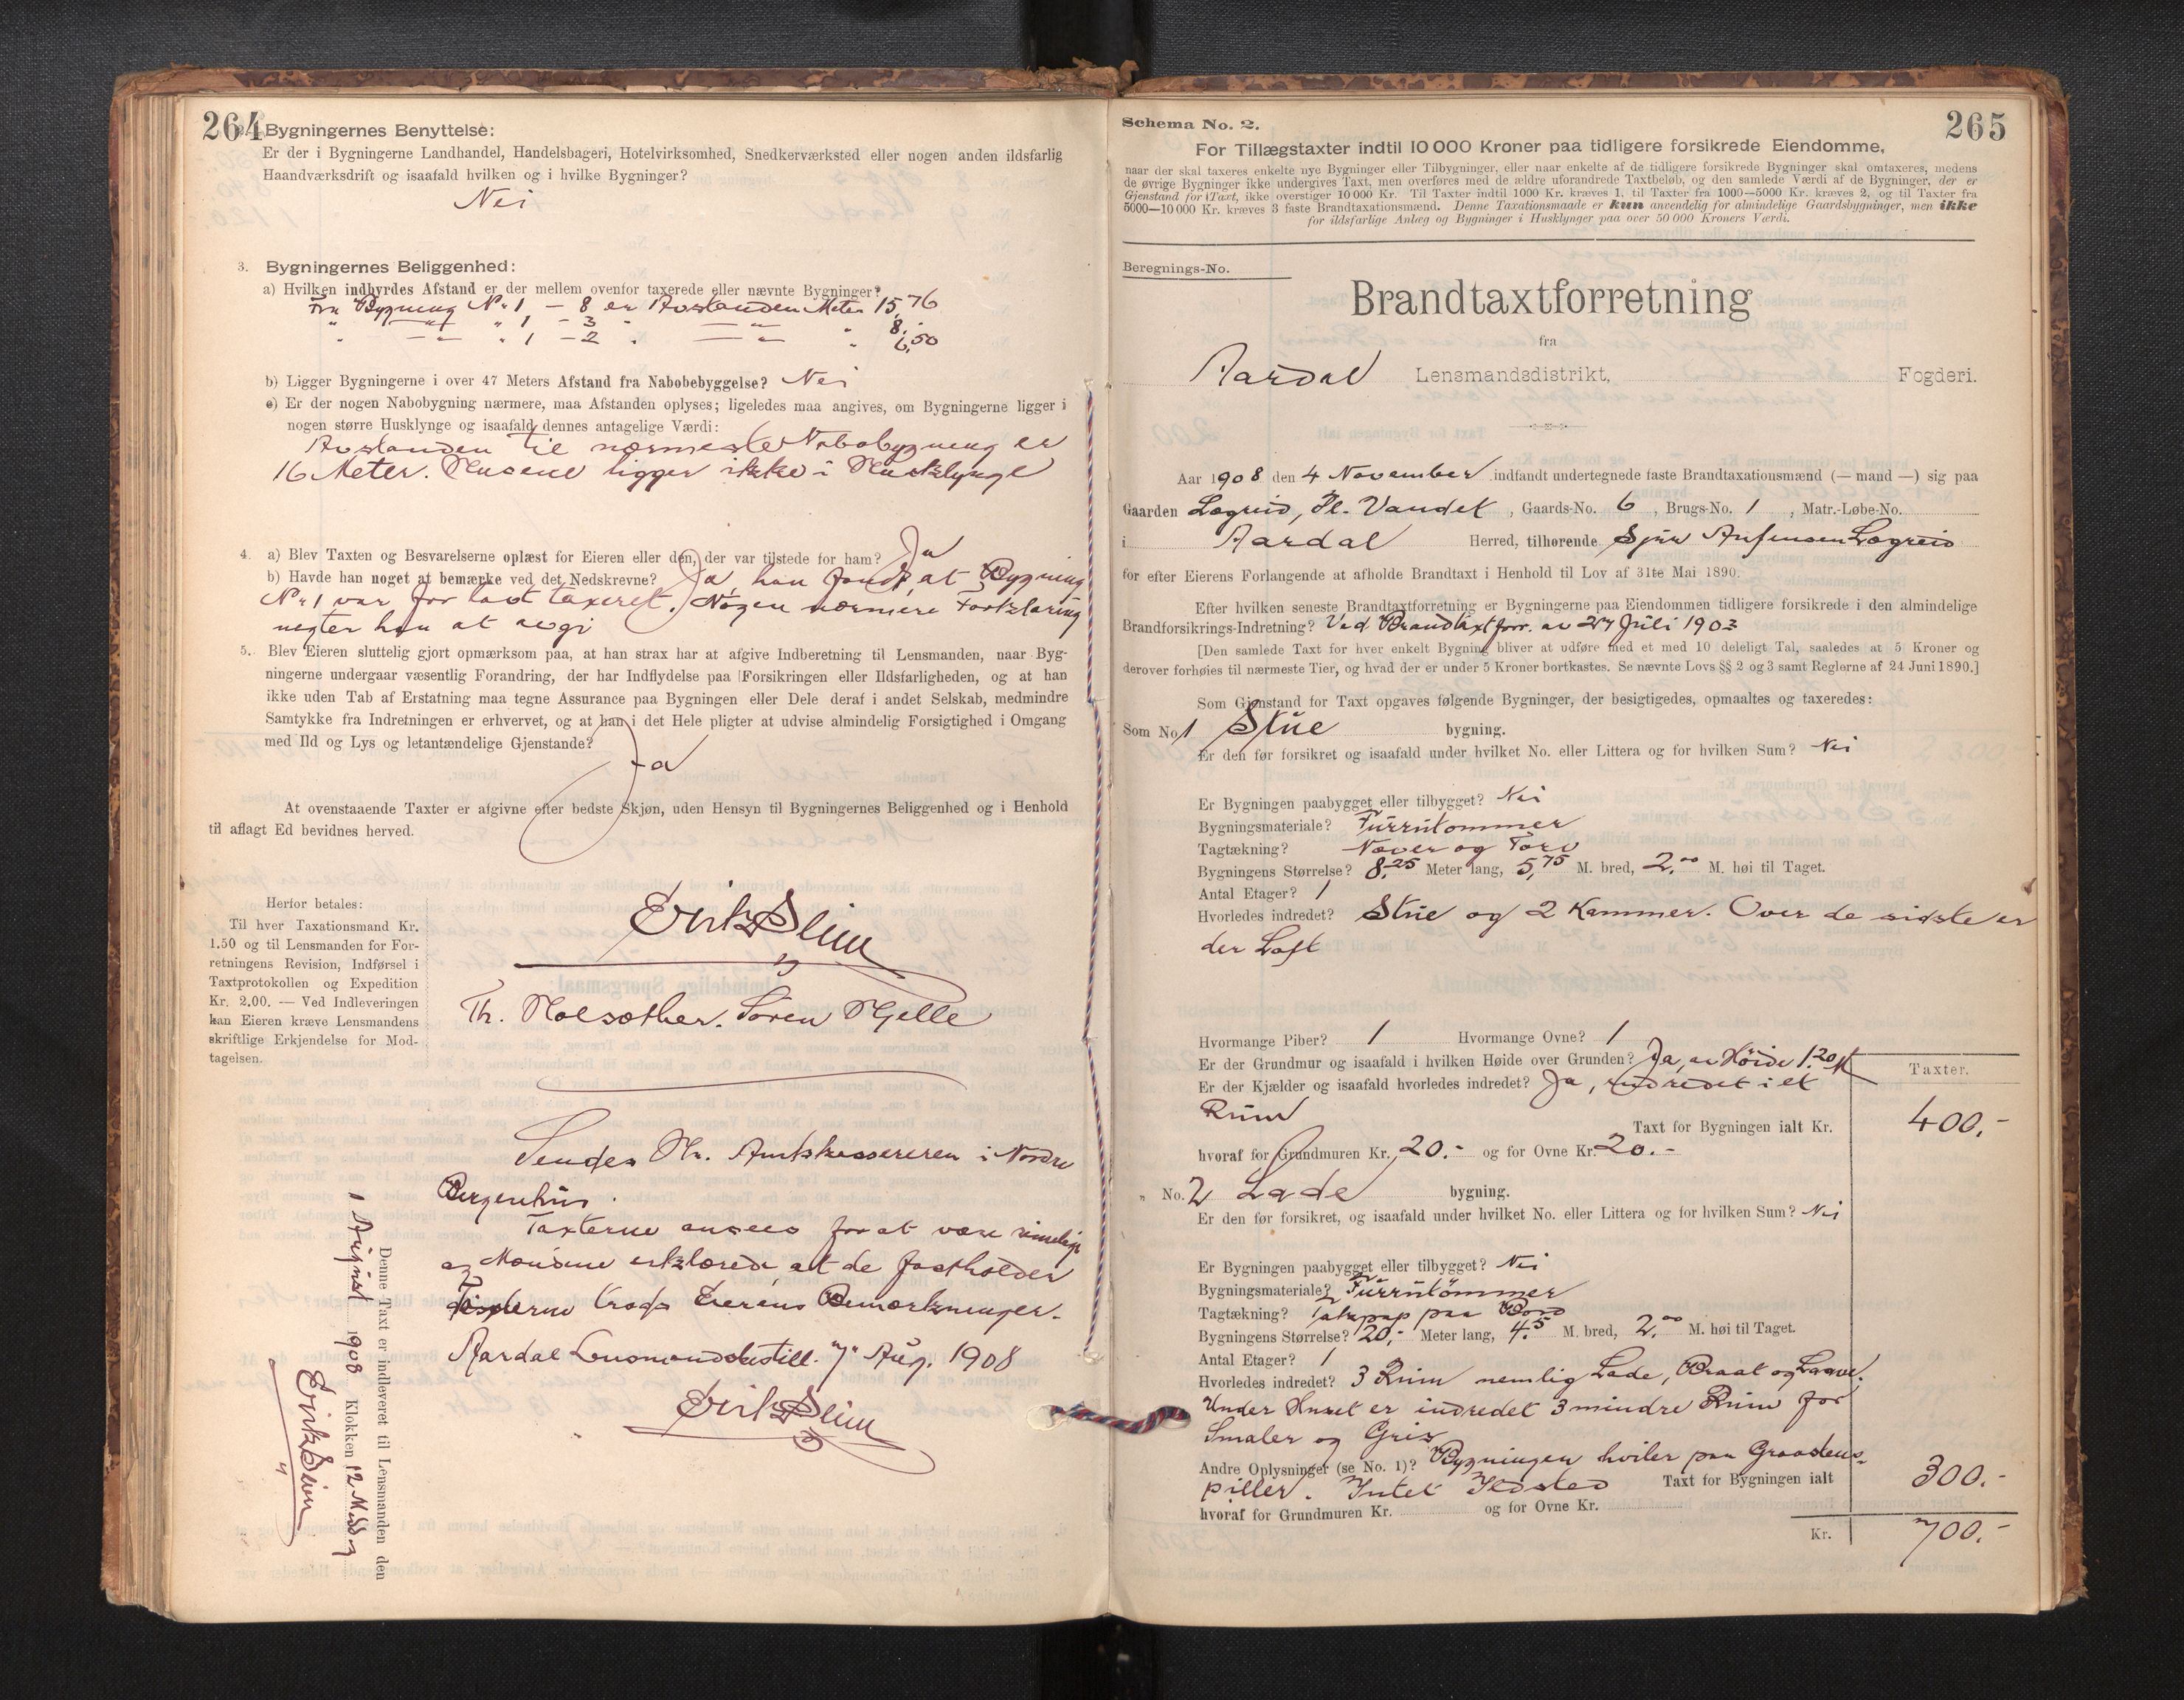 264
Bygningernes Benyttelse:
Er der i Bygningerne Landhandel, Handelsbageri, Hotelvirksomhed, Snedkerværksted eller nogen anden ildsfarlig
Haandværksdrift og isaafald hvilken og i hvilke Bygninger?
Nei
3. Bygningernes Beliggenhed:
a) Hvilken indbyrdes Afstand er der mellem ovenfor taxerede eller nævnte Bygninger?
Fra Bygning No 1 - 8 er Avstanden Meter 15,76
" —"— " 1 - 3 " —"— " 8,-
" —"— " 1 - 2 " —"— " 6,50
b) Ligger Bygningerne i over 47 Meters Afstand fra Nabobebyggelse? Nei
c) Er der nogen Nabobygning nærmere, maa Afstanden oplyses; ligeledes maa angives, om Bygningerne ligger i
nogen større Husklynge og isaafald dennes antagelige Værdi:
Avstanden til nærmeste Nabobygning er
16 Meter. Husene ligger ikke i Husklynge
4. a) Blev Taxten og Besvarelserne oplæst for Eieren eller den, der var tilstede for ham? Ja
b) Havde han noget at bemærke ved det Nedskrevne? Ja, han fandt, at Bygning
No 1 var for lavt taxeret. Nogen nærmere Forklaring
negter han at avgi
5. Blev Eieren sluttelig gjort opmærksom paa, at han strax har at afgive Indberetning til Lensmanden, naar Byg-
ningerne undergaar væsentlig Forandring, der har Indflydelse paa Forsikringen eller Ildsfarligheden, og at han
ikke uden Tab af Erstatning maa tegne Assurance paa Bygningen eller Dele deraf i andet Selskab, medmindre
Samtykke fra Indretningen er erhvervet, og at han i det Hele pligter at udvise almindelig Forsigtighed i Omgang
med Ild og Lys og letantændelige Gjenstande?
Ja
At ovenstaaende Taxter er afgivne efter bedste Skjøn, uden Hensyn til Bygningernes Beliggenhed og i Henhold
til aflagt Ed bevidnes herved.
Herfor betales:
Til hver Taxationsmand Kr.
1.50 og til Lensmanden for For-
retningens Revision, Indførsel i
Taxtprotokollen og Expedition
Kr. 2.00. — Ved Indleveringen
kan Eieren kræve Lensmandens
skriftlige Erkjendelse for Mod-
tagelsen.
Erik Slim
Th. Holsæther. Søren Hjelle
Sendes Hr. Amtskassereren i Nordre
Bergenhus.
Taxterne ansees for at være rimelige
og Mændene erklærede at de fastholder
Taxterne trods Eierens Bemærkninger.
Aardal Lensmandsbestill. 7 Aug. 1908
Erik Slim
Denne Taxt er indleveret til Lensmanden den
- August 1908 Klokken 12 Middag
Erik Slim
265
Schema No. 2.
For Tillægstaxter indtil 10 000 Kroner paa tidligere forsikrede Eiendomme,
naar der skal taxeres enkelte nye Bygninger eller Tilbygninger, eller naar enkelte af de tidligere forsikrede Bygninger skal omtaxeres, medens
de øvrige Bygninger ikke undergives Taxt, men overføres med de ældre uforandrede Taxtbeløb, og den samlede Værdi af de Bygninger, der er
Gjenstand for Taxt, ikke overstiger 10 000 Kr. Til Taxter indtil 1000 Kr. kræves 1, til Taxter fra 1000—5000 Kr. kræves 2, og til Taxter fra
5000—10 000 Kr. kræves 3 faste Brandtaxationsmænd. Denne Taxationsmaade er kun anvendelig for almindelige Gaardsbygninger, men ikke
for ildsfarlige Anlæg og Bygninger i Husklynger paa over 50 000 Kroners Værdi.
Beregnings-No.
Brandtaxtforretning
fra
Aardal Lensmandsdistrikt, Fogderi.
Aar 1908 den 4 November indfandt undertegnede faste Brandtaxationsmænd (— mand —) sig paa
Gaarden Lægreid, Pl. Vandet, Gaards-No. 6, Brugs-No. 1, Matr.-Løbe-No.
i Aardal Herred, tilhørende Sjur Anfensen Lægreid
for efter Eierens Forlangende at afholde Brandtaxt i Henhold til Lov af 31te Mai 1890.
Efter hvilken seneste Brandtaxtforretning er Bygningerne paa Eiendommen tidligere forsikrede i den almindelige
Brandforsikrings-Indretning? Ved Brandtaxtforr. av 27 Juli 1903
[Den samlede Taxt for hver enkelt Bygning bliver at udføre med et med 10 deleligt Tal, saaledes at 5 Kroner og
derover forhøies til nærmeste Tier, og hvad der er under 5 Kroner bortkastes. Se nævnte Lovs §§ 2 og 3 samt Reglerne af 24 Juni 1890.]
Som Gjenstand for Taxt opgaves følgende Bygninger, der besigtigedes, opmaaltes og taxeredes:
Som No. 1 Stue bygning.
Er den før forsikret og isaafald under hvilket No. eller Littera og for hvilken Sum? Nei
Er Bygningen paabygget eller tilbygget? Nei
Bygningsmateriale? Furrutømmer
Tagtækning? Næver og Torv
Bygningens Størrelse? 8,25 Meter lang, 5,75 M. bred, 2,00 M. høi til Taget.
Antal Etager? 1
Hvorledes indredet? Stue og 2 Kammer. Over de sidste er
der Loft
Hvormange Piber? 1 Hvormange Ovne? 1
Er der Grundmur og isaafald i hvilken Høide over Grunden? Ja, av Höide 1.20 M
Er der Kjælder og isaafald hvorledes indredet? Ja, indredet i et
Rum
Taxter.
Taxt for Bygningen ialt Kr. 400.-
hvoraf for Grundmuren Kr. 20.- og for Ovne Kr. 20.-
" No. 2 Lade bygning.
Er den før forsikret, og isaafald under hvilket No. eller Littera og for hvilken Sum? Nei
Er Bygningen paabygget eller tilbygget? Nei
Bygningsmateriale? Furrutömmer
Tagtækning? Takpap paa Bord
Bygningens Størrelse? 20,- Meter lang, 4.5 M. bred, 2,00 M. høi til Taget.
Antal Etager? 1
Hvorledes indredet? 3 Rum nemlig Lade, Braat og Laave.
Under Huset er indredet 3 mindre Rum for
Smaler og Gris
Andre Oplysninger (se No. 1)? Bygningen hviler paa Graastens-
piller. Intet Ildsted Taxt for Bygningen ialt 300.-
hvoraf for Grundmuren Kr. og for Ovne Kr.
Kr. 700.-